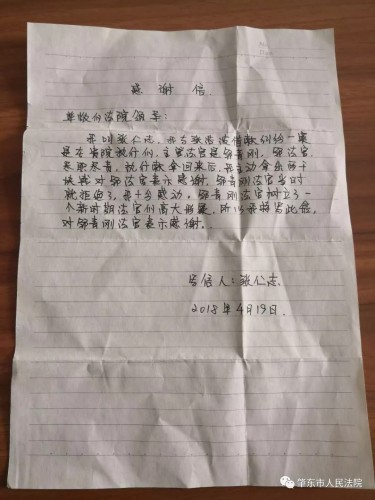 感谢信
尊敬的法院领导:
我叫张仁志,我与张浩波借款纠纷一案
是在贵院执行的,主管法官是邹青刚,邹法官
尽职尽责,执行款拿回来后,我
对邹法官表示感谢,邹青刚法官当时
就拒绝了,我十分感动,邹青刚法官树立了一
个新时期法官的高大形象,所以
对邹青刚法官表示感谢。
写信人:张仁志
2018年4月19日.
肇东市人民法院